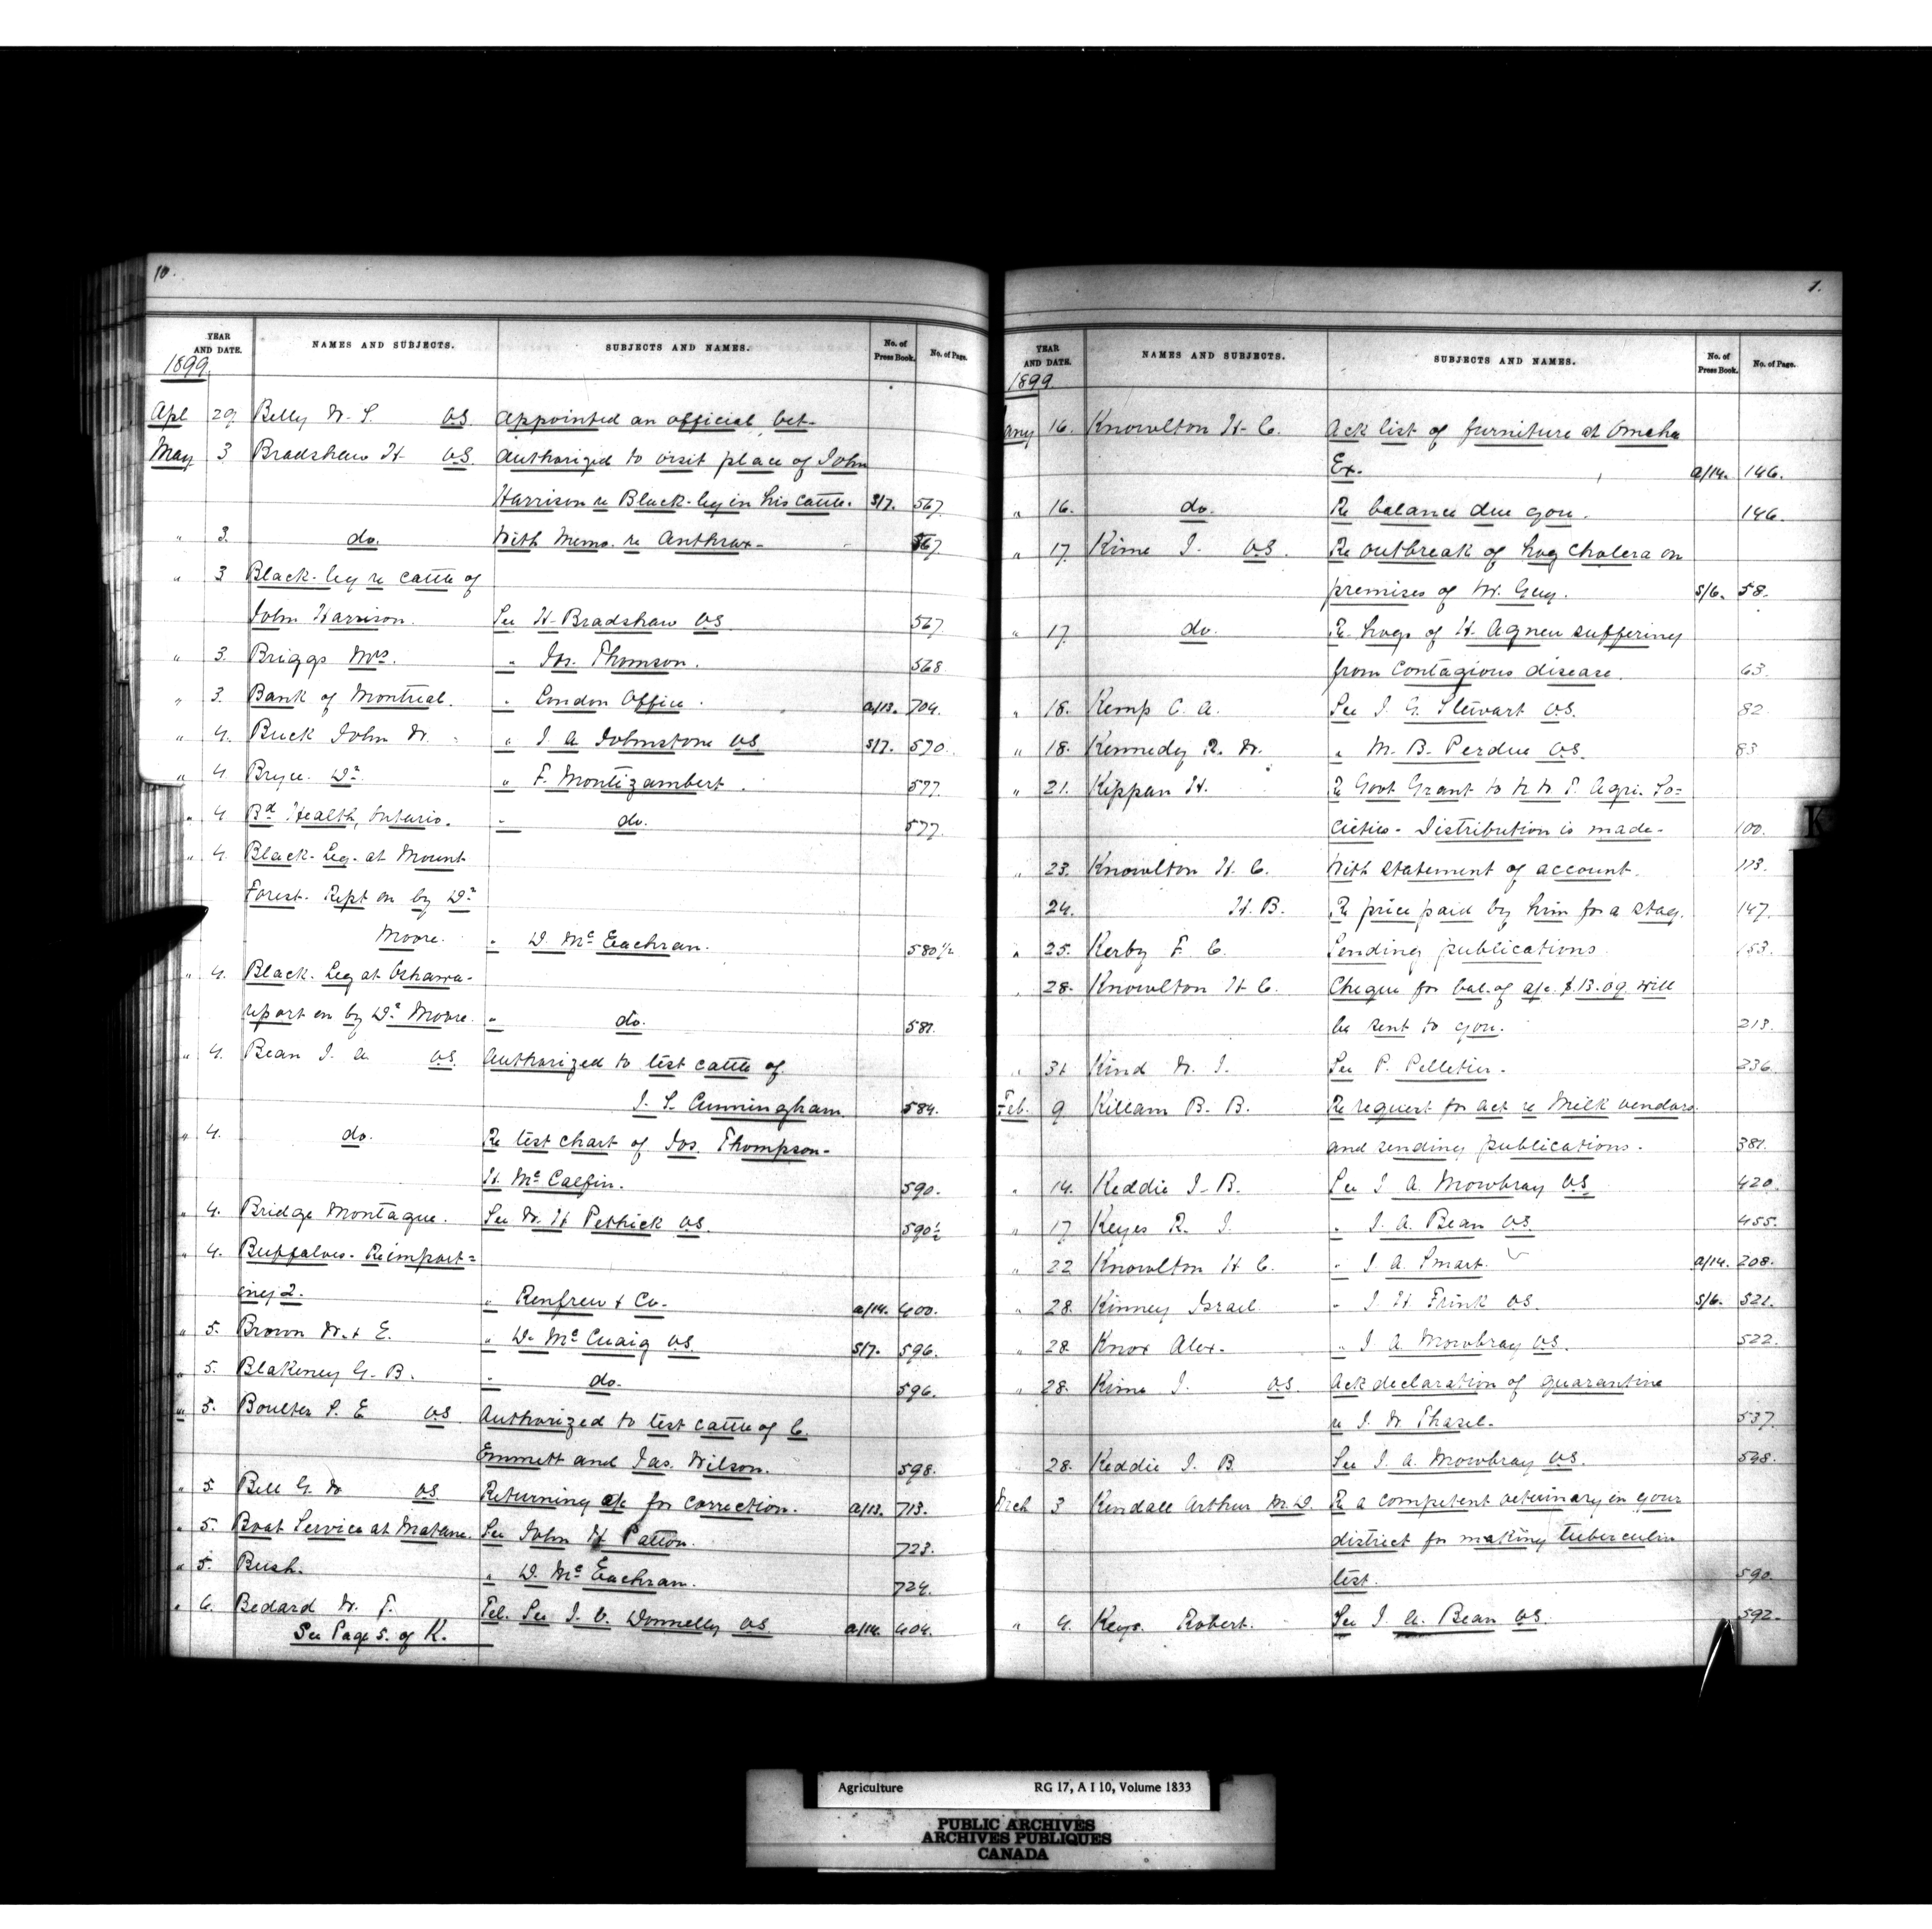 10.
YEAR AND DATE. NAMES AND SUBJECTS. SUBJECTS AND NAMES. No. of Press Book. No. of Page.
1899
Apl 29 Belly W. S. V.S. Appointed an official vet.
May 3 Bradshaw H. V.S. Authorized to visit place of John
Harrison re Black-leg in his cattle. S/7. 567
" 3. do. With Memo. re Anthrax 567
" 3 Black-leg re cattle of
John Harrison. See H. Bradshaw V.S. 567
" 3. Briggs Mrs. " Jos. Thomson. 568
" 3. Bank of Montreal. " London Office. a/13. 704.
" 4. Buck John W. " J. A. Johnstone V.S. S/7. 570.
" 4. Bryce Dr. " F. Montizambert. 577.
" 4 Bd Health, Ontario. " do. 577.
" 4. Black-Leg. at Mount
Forest. Rept on by Dr
Moore. " D. McEachran. 580 1/2
" 4. Black. Leg at Oshawa-
report on by Dr. Moore. " do. 581.
" 4. Bean J. A. V.S. Authorized to test cattle of
J. S. Cunningham 584.
" 4. do. Re test chart of Jos. Thompson-
H. McCalfin. 590.
" 4. Bridge Montague. See W. H. Pethick V.S. 590 1/2
" 4. Buffaloes. Reimport=
ing 2. " Renfrew & Co. a/14. 400.
" 5. Brown W. & E. " D. McCuaig V.S. S/7. 596.
" 5. Blakeney G. B. " do. 596.
" 5. Boulter S. E. V.S. Authorized to test cattle of C.
Emmett and Jas. Wilson. 598.
" 5. Bell G. W. V.S. Returning a/c for correction. a/13. 713.
" 5. Boat Service at Matane. See John H Patton. 723.
" 5. Bush. " D. McEachran. 724.
" 6. Bedard W. F. Tel. See J. V. Donnelly V.S. a/14. 404.
See Page 5. of K.
1.
YEAR AND DATE. NAMES AND SUBJECTS. SUBJECTS AND NAMES. No. of Press Book. No. of Page.
1899.
Jany 16. Knowlton H. C. Ack list of furniture at Omaha
Ex. a/14. 146.
" 16. do. Re balance due you. 146.
" 17. Kime J. V.S. Re outbreak of hog cholera on
premises of W. Guy. S/6. 58.
" 17. do. Re hogs of H. Agnew suffering
from contagious disease. 63.
" 18. Kemp C. A. See J. G. Stewart V.S. 82
" 18. Kennedy R. W. " M. B. Perdue V.S. 83
" 21. Kippan H. Re Govt Grant to N. W. T. Agri. So=
cieties. Distribution is made. 100.
K
" 23. Knowlton H. C. With statement of account. 113.
24. H. B. Re price paid by him for a stag. 147.
" 25. Kerby F. C. Sending publications. 153.
" 28. Knowlton H. C. Cheque for bal. of a/c. $13.09 will
be sent to you. 213.
" 31 Kind W. J. See P. Pelletier. 236.
Feb. 9 Killam B. B. Re request for act re Milk vendors
and sending publications. 381.
" 14. Keddie J. B. See J. A. Mowbray V.S. 420.
" 17 Keyes R. J. " J. A. Bean V.S. 455.
" 22 Knowlton H. C. " J. A. Smart. a/14. 208.
" 28. Kinney Israel " J. H. Frink V.S. S/6. 521.
" 28. Knox Alex. " J. A. Mowbray V.S. 522.
" 28. Kime J. V.S. Ack declaration of quarantine
re J. W. Phasel. 537.
28. Keddie J. B. See J. A. Mowbray V.S. 548.
Mch 3 Kendall Arthur M.D. Re a competent veterinary in your
district for making tuberculin
test. 590
" 4. Keys. Robert. See J. A. Bean V.S. 592.
Agriculture RG 17, A I 10, Volume 1833
PUBLIC ARCHIVES
ARCHIVES PUBLIQUES
CANADA